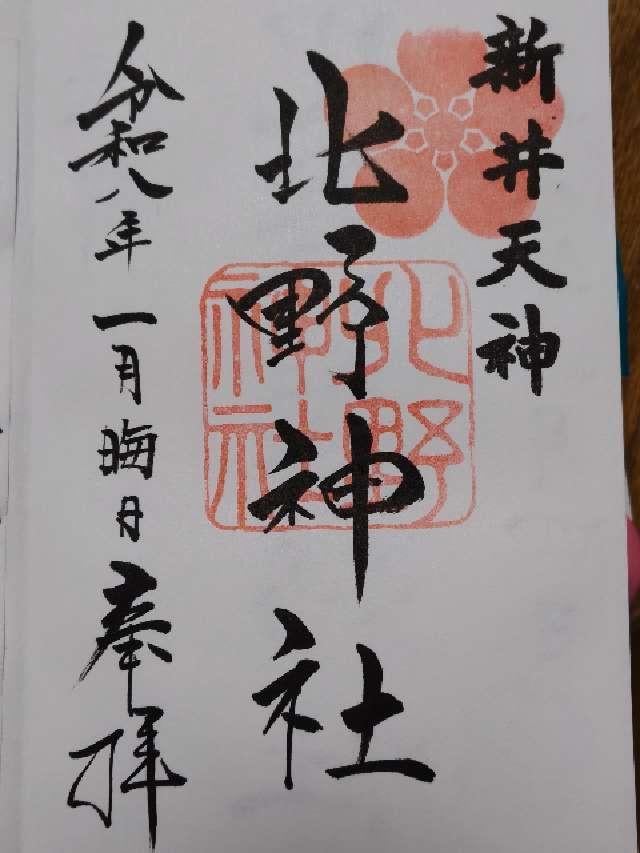 新井天神
北野神社
北野神社
令和八年 一月晦日 奉拝